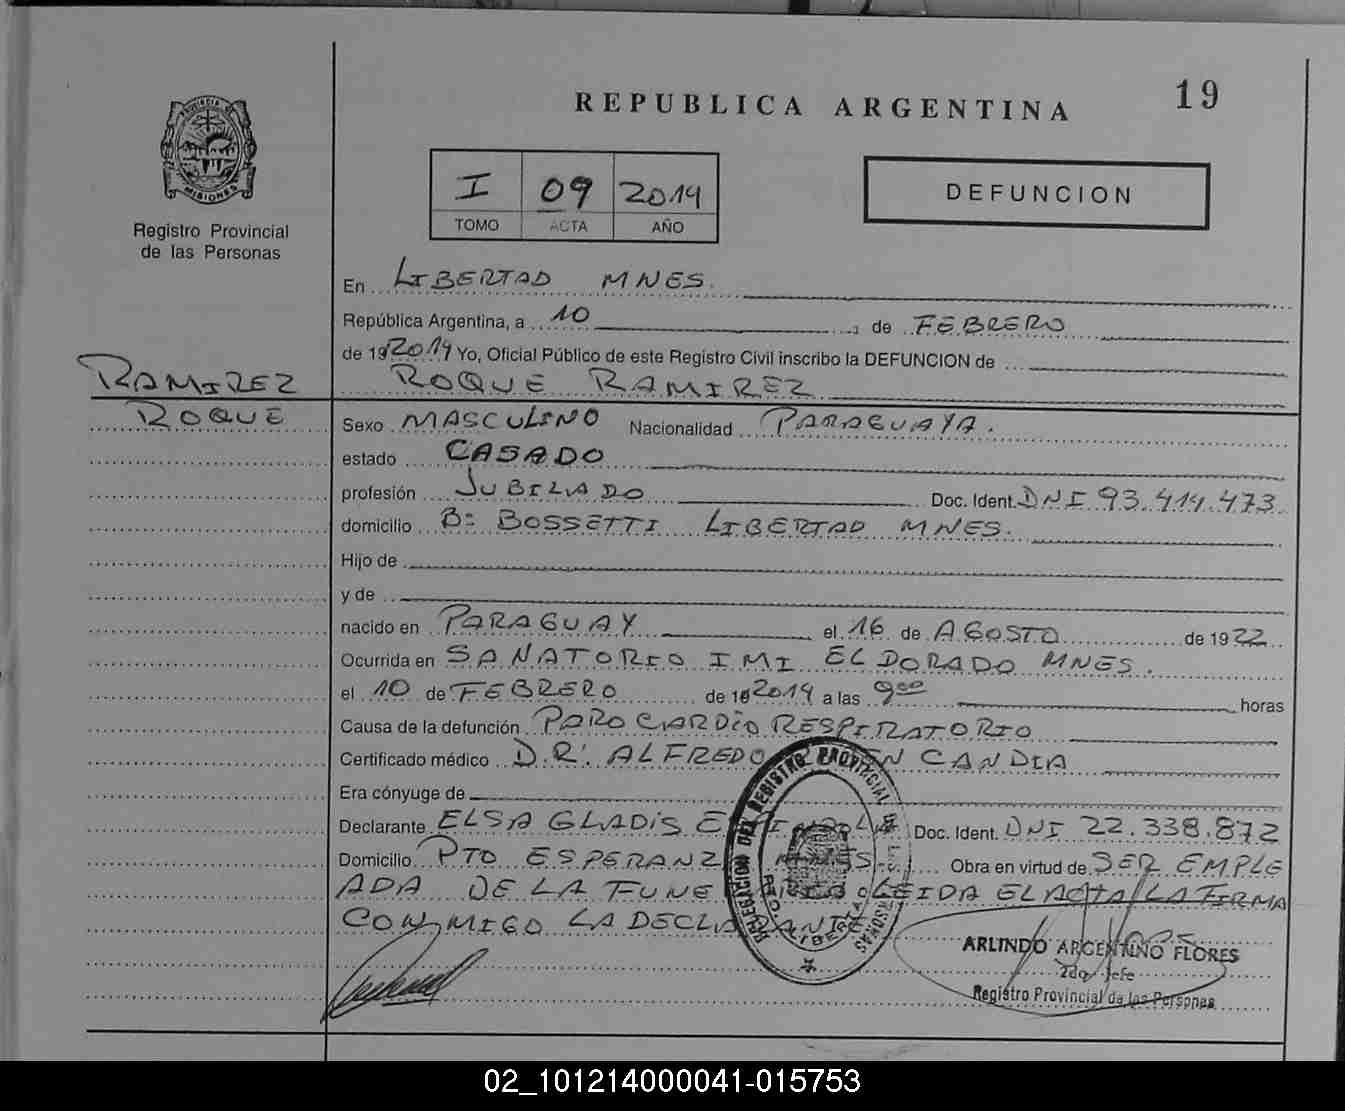 19
REPUBLICA ARGENTINA
PROVINCIA DE
MISIONES
Registro Provincial
de las Personas
I 09 2014
TOMO ACTA AÑO
DEFUNCION
En LIBERTAD MNES.
República Argentina, a 10 de FEBRERO
de 192014 Yo, Oficial Público de este Registro Civil inscribo la DEFUNCION de
RAMIREZ
ROQUE RAMIREZ
ROQUE
Sexo MASCULINO Nacionalidad PARAGUAYA.
estado CASADO
profesión JUBILADO Doc. Ident. DNI 93.414.473
domicilio Bº BOSSETTI LIBERTAD MNES.
Hijo de
y de
nacido en PARAGUAY el 16 de AGOSTO de 1922
Ocurrida en SANATORIO IMI ELDORADO MNES.
el 10 de FEBRERO de 192014 a las 9:00 horas
Causa de la defunción PARO CARDIO RESPIRATORIO
Certificado médico D.R: ALFREDO CANDIA
Era cónyuge de
Declarante ELSA GLADIS Doc. Ident. DNI 22.338.872
Domicilio PTO ESPERANZA MNES. Obra en virtud de SER EMPLE
ADA DE LA FUNE LEIDA EL ACTA LA FIRMA
CONMIGO LA DECLARANTE
DELEGACION DEL REGISTRO PROVINCIAL DE LAS PERSONAS
LIBERTAD
ARLINDO ARGENTINO FLORES
2do Jefe
Registro Provincial de las Personas
02_101214000041-015753